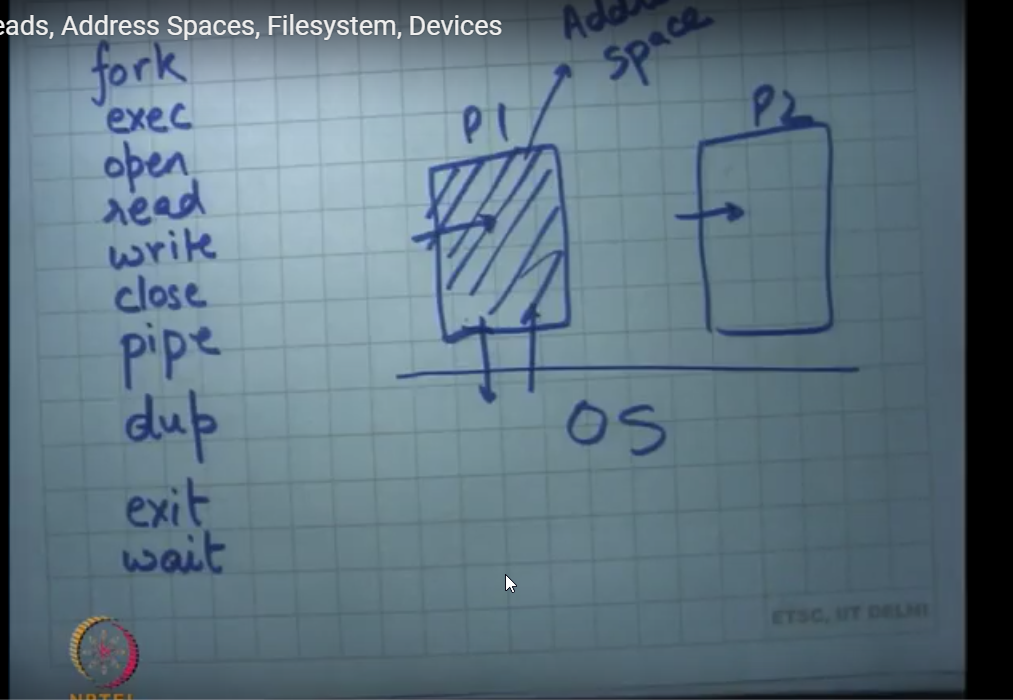 eads, Address Spaces, Filesystem, Devices
fork
exec
open
read
write
close
pipe
dup
exit
wait
Addr
space
P1
P2
OS
ETSC, IIT DELHI
NPTEL